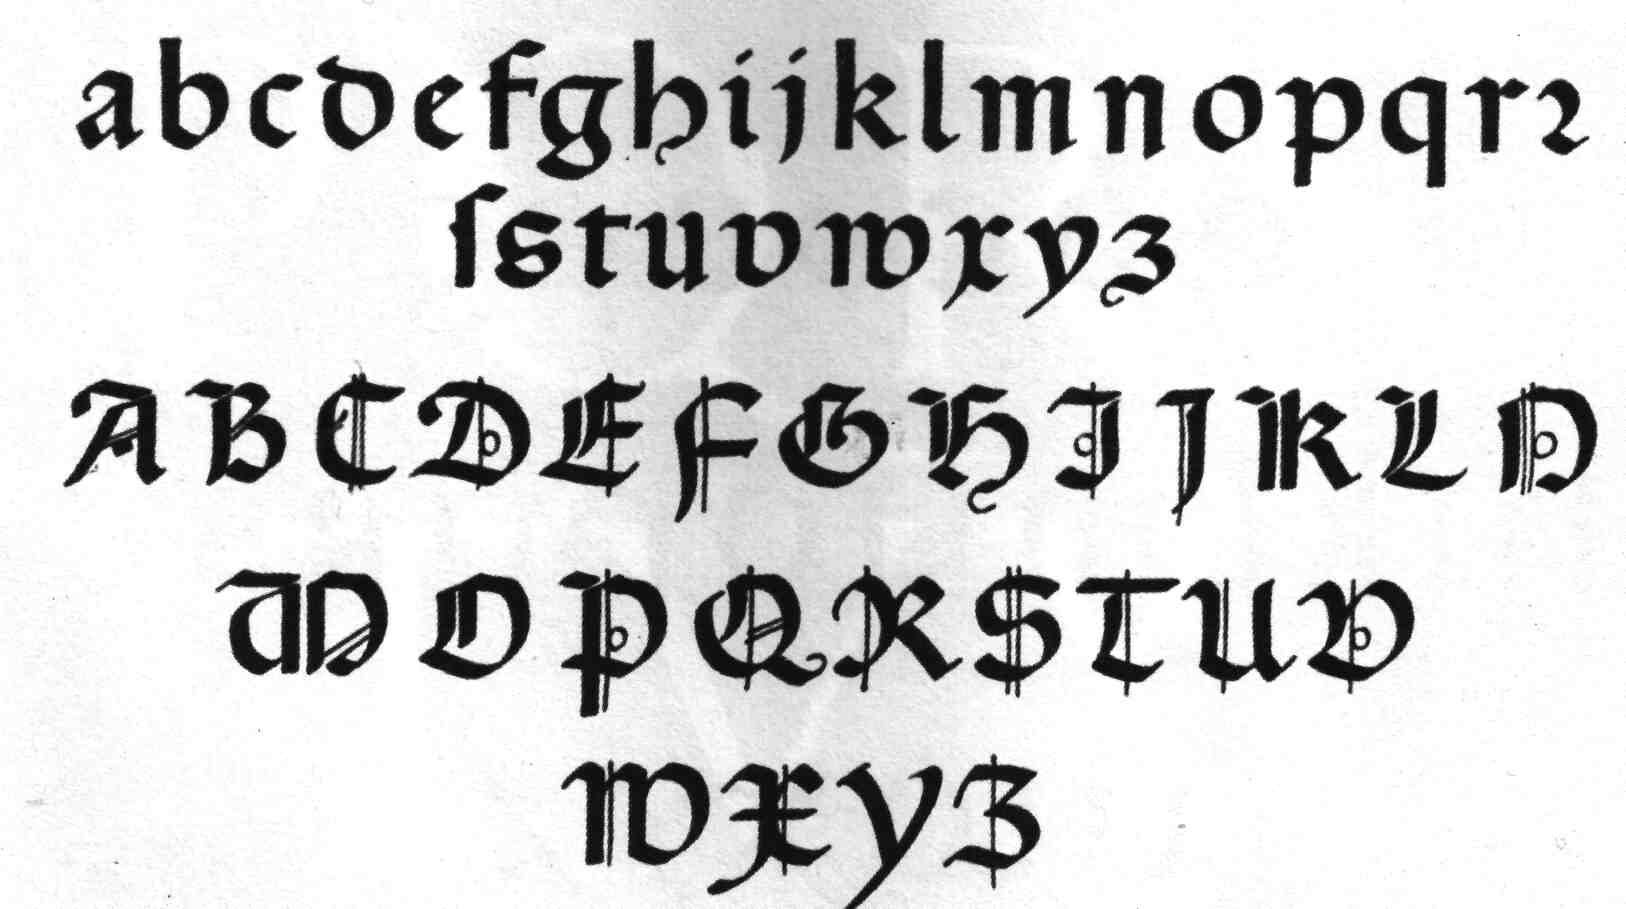 abcdefghijklmnopqrꝛ
ſstuvwxyz
ABCDEFGHIJKLN
MOPQRSTUV
WXYZ